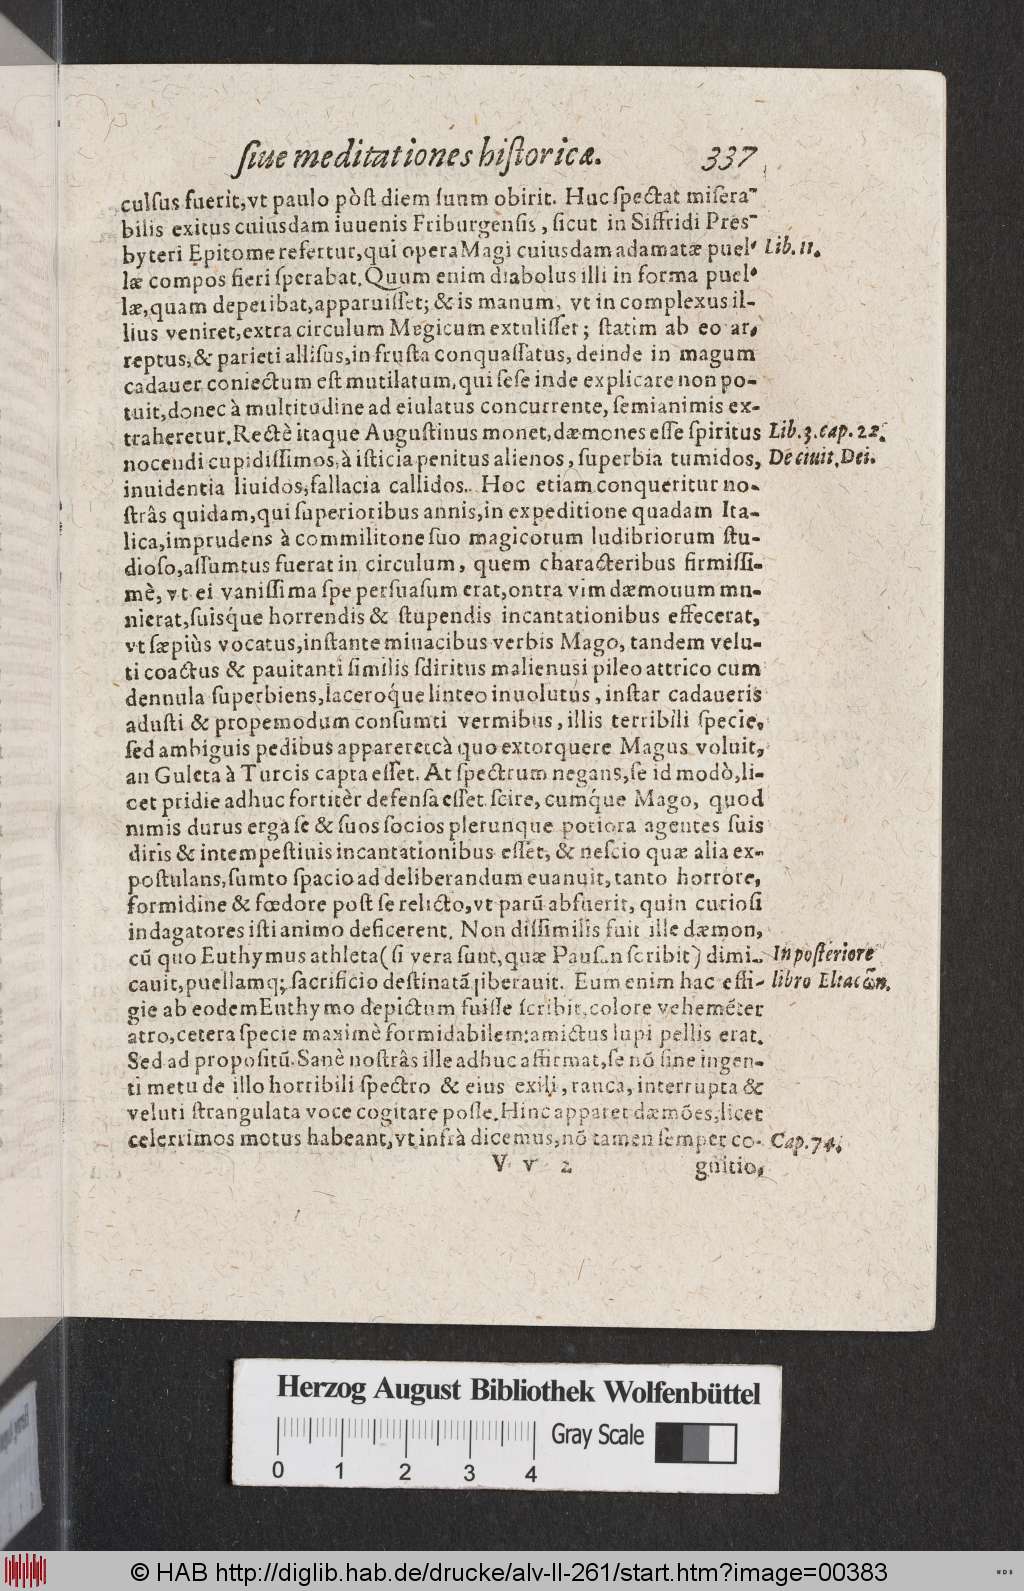 ſiue meditationes hiſtoricæ. 337
culſus fuerit,vt paulo pòſt diem ſuum obirit. Huc ſpectat miſera-
bilis exitus cuiusdam iuuenis Friburgenſis, ſicut in Siffridi Pres-
byteri Epitome refertur,qui opera Magi cuiusdam adamatæ puel- Lib. 11.
læ compos fieri ſperabat. Quum enim diabolus illi in forma puel-
læ,quam deperibat,apparuiſſet; & is manum, vt in complexus il-
lius veniret,extra circulum Megicum extuliſſet; ſtatim ab eo ar,
reptus,& parieti alliſus,in fruſta conquaſſatus, deinde in magum
cadauer coniectum eſt mutilatum,qui ſeſe inde explicare non po-
tuit,donec à multitudine ad eiulatus concurrente, ſemianimis ex-
traheretur. Rectè itaque Auguſtinus monet,dæmones eſſe ſpiritus Lib.3.cap.22.
nocendi cupidiſſimos,à iſticia penitus alienos, ſuperbia tumidos, De ciuit.Dei.
inuidentia liuidos,fallacia callidos. Hoc etiam conqueritur no-
ſtrâs quidam,qui ſuperioribus annis,in expeditione quadam Ita-
lica,imprudens à commilitone ſuo magicorum ludibriorum ſtu-
dioſo,aſſumtus fuerat in circulum, quem characteribus firmiſſi-
mè, vt ei vaniſſima ſpe perſuaſum erat,ontra vim dæmouum mu-
nierat,ſuisq́ue horrendis & ſtupendis incantationibus effecerat,
vt ſæpiùs vocatus,inſtante minacibus verbis Mago, tandem velu-
ti coactus & pauitanti ſimilis ſdiritus malienusi pileo attrico cum
dennula ſuperbiens,laceroq́ue linteo inuolutus, inſtar cadaueris
aduſti & propemodum conſumti vermibus, illis terribili ſpecie,
ſed ambiguis pedibus appareretcà quo extorquere Magus voluit,
an Guleta à Turcis capta eſſet. At ſpectrum negans,ſe id modò,li-
cet pridie adhuc fortitèr defenſa eſſet ſcire, cumq́ue Mago, quod
nimis durus erga ſe & ſuos ſocios plerunque potiora agentes ſuis
diris & intempeſtiuis incantationibus eſſet, & neſcio quæ alia ex-
poſtulans,ſumto ſpacio ad deliberandum euanuit,tanto horrore,
formidine & fœdore poſt ſe relicto,vt parũ abfuerit, quin curioſi
indagatores iſti animo deficerent. Non diſſimilis fuit ille dæmon,
cũ quo Euthymus athleta (ſi vera ſunt,quæ Pauſ.n ſcribit) dimi- In poſteriore
cauit,puellamq; ſacrificio deſtinatã liberauit. Eum enim hac effi- libro Eliacῶn.
gie ab eodem Euthymo depictum fuiſſe ſcribit,colore vehemẽter
atro,cetera ſpecie maximè formidabilem:amictus lupi pellis erat.
Sed ad propoſitũ. Sanè noſtrâs ille adhuc affirmat,ſe nõ ſine ingen-
ti metu de illo horribili ſpectro & eius exili, rauca, interrupta &
veluti ſtrangulata voce cogitare poſſe. Hinc apparet dæmões,licet
celerrimos motus habeant,vt infrà dicemus,nõ tamen ſemper co- Cap.74.
V v 2 gnitio,
Herzog August Bibliothek Wolfenbüttel
Gray Scale
0 1 2 3 4
© HAB http://diglib.hab.de/drucke/alv-ll-261/start.htm?image=00383